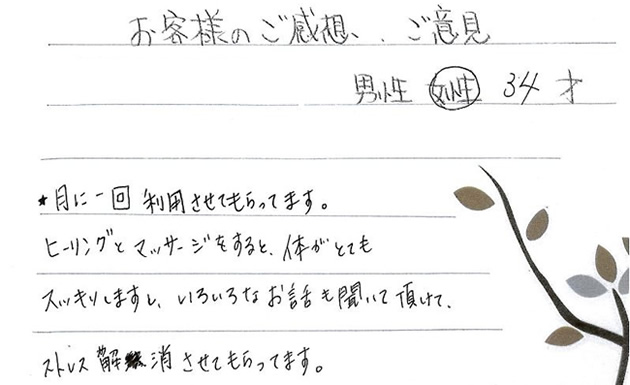 お客様のご感想、ご意見
男性 女性 34 才
★月に一回 利用させてもらってます。
ヒーリングとマッサージをすると、体がとても
スッキリしますし、いろいろなお話も聞いて頂けて、
ストレス解消させてもらってます。